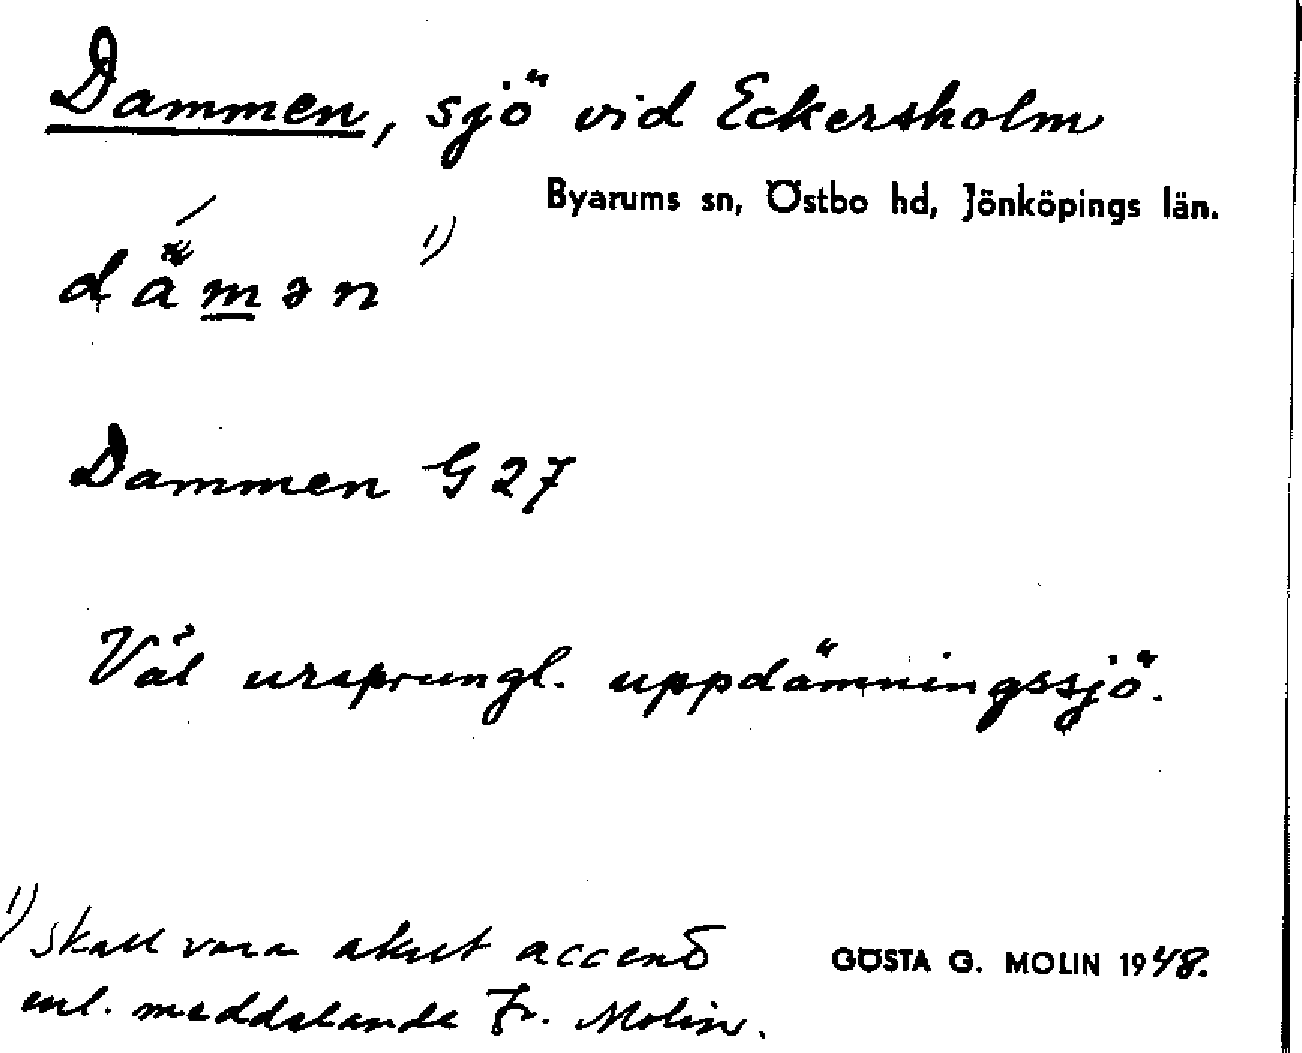 Dammen, sjö vid Eckersholm
Byarums sn, Östbo hd, Jönköpings län.
dämən 1)
Dammen G 27
Väl ursprungl. uppdämningssjö.
1) skall vara akut accent
enl. meddelande fr. Molin.
GÖSTA G. MOLIN 1948.